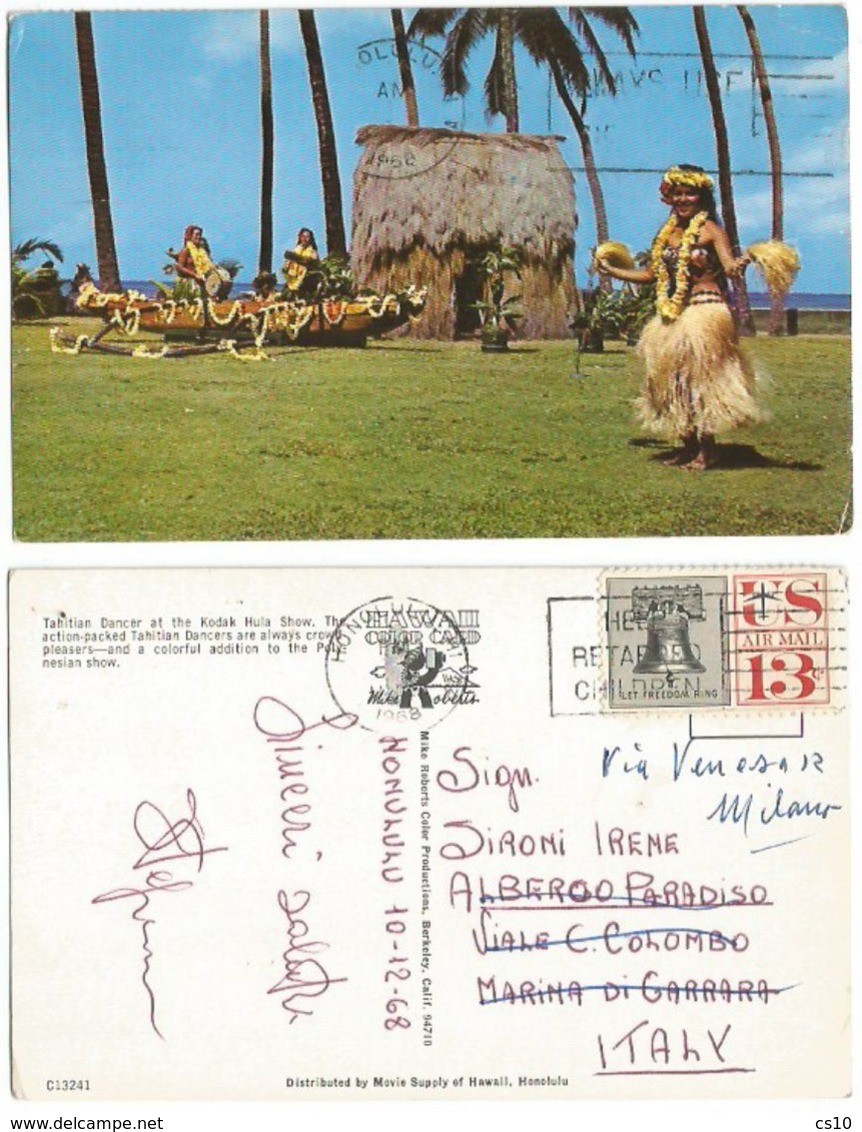 OLULU,
AM
1968
WAYS USE
Tahitian Dancer at the Kodak Hula Show. The
action-packed Tahitian Dancers are always crowd
pleasers—and a colorful addition to the Poly-
nesian show.
HONOLULU
1968
HAWAII
COLOR CARD
Mike Roberts
HELP
RETARDED
CHILDREN
LET FREEDOM RING
US
AIR MAIL
13c
Via Venosa 12
Milano
Sinceri saluti
HONULULU 10-12-68
Mike Roberts Color Productions, Berkeley, Calif. 94710
Sign.
SIRONI IRENE
ALBERGO PARADISO
VIALE C. COLOMBO
MARINA DI CARRARA
ITALY
C13241
Distributed by Movie Supply of Hawaii, Honolulu
cs10